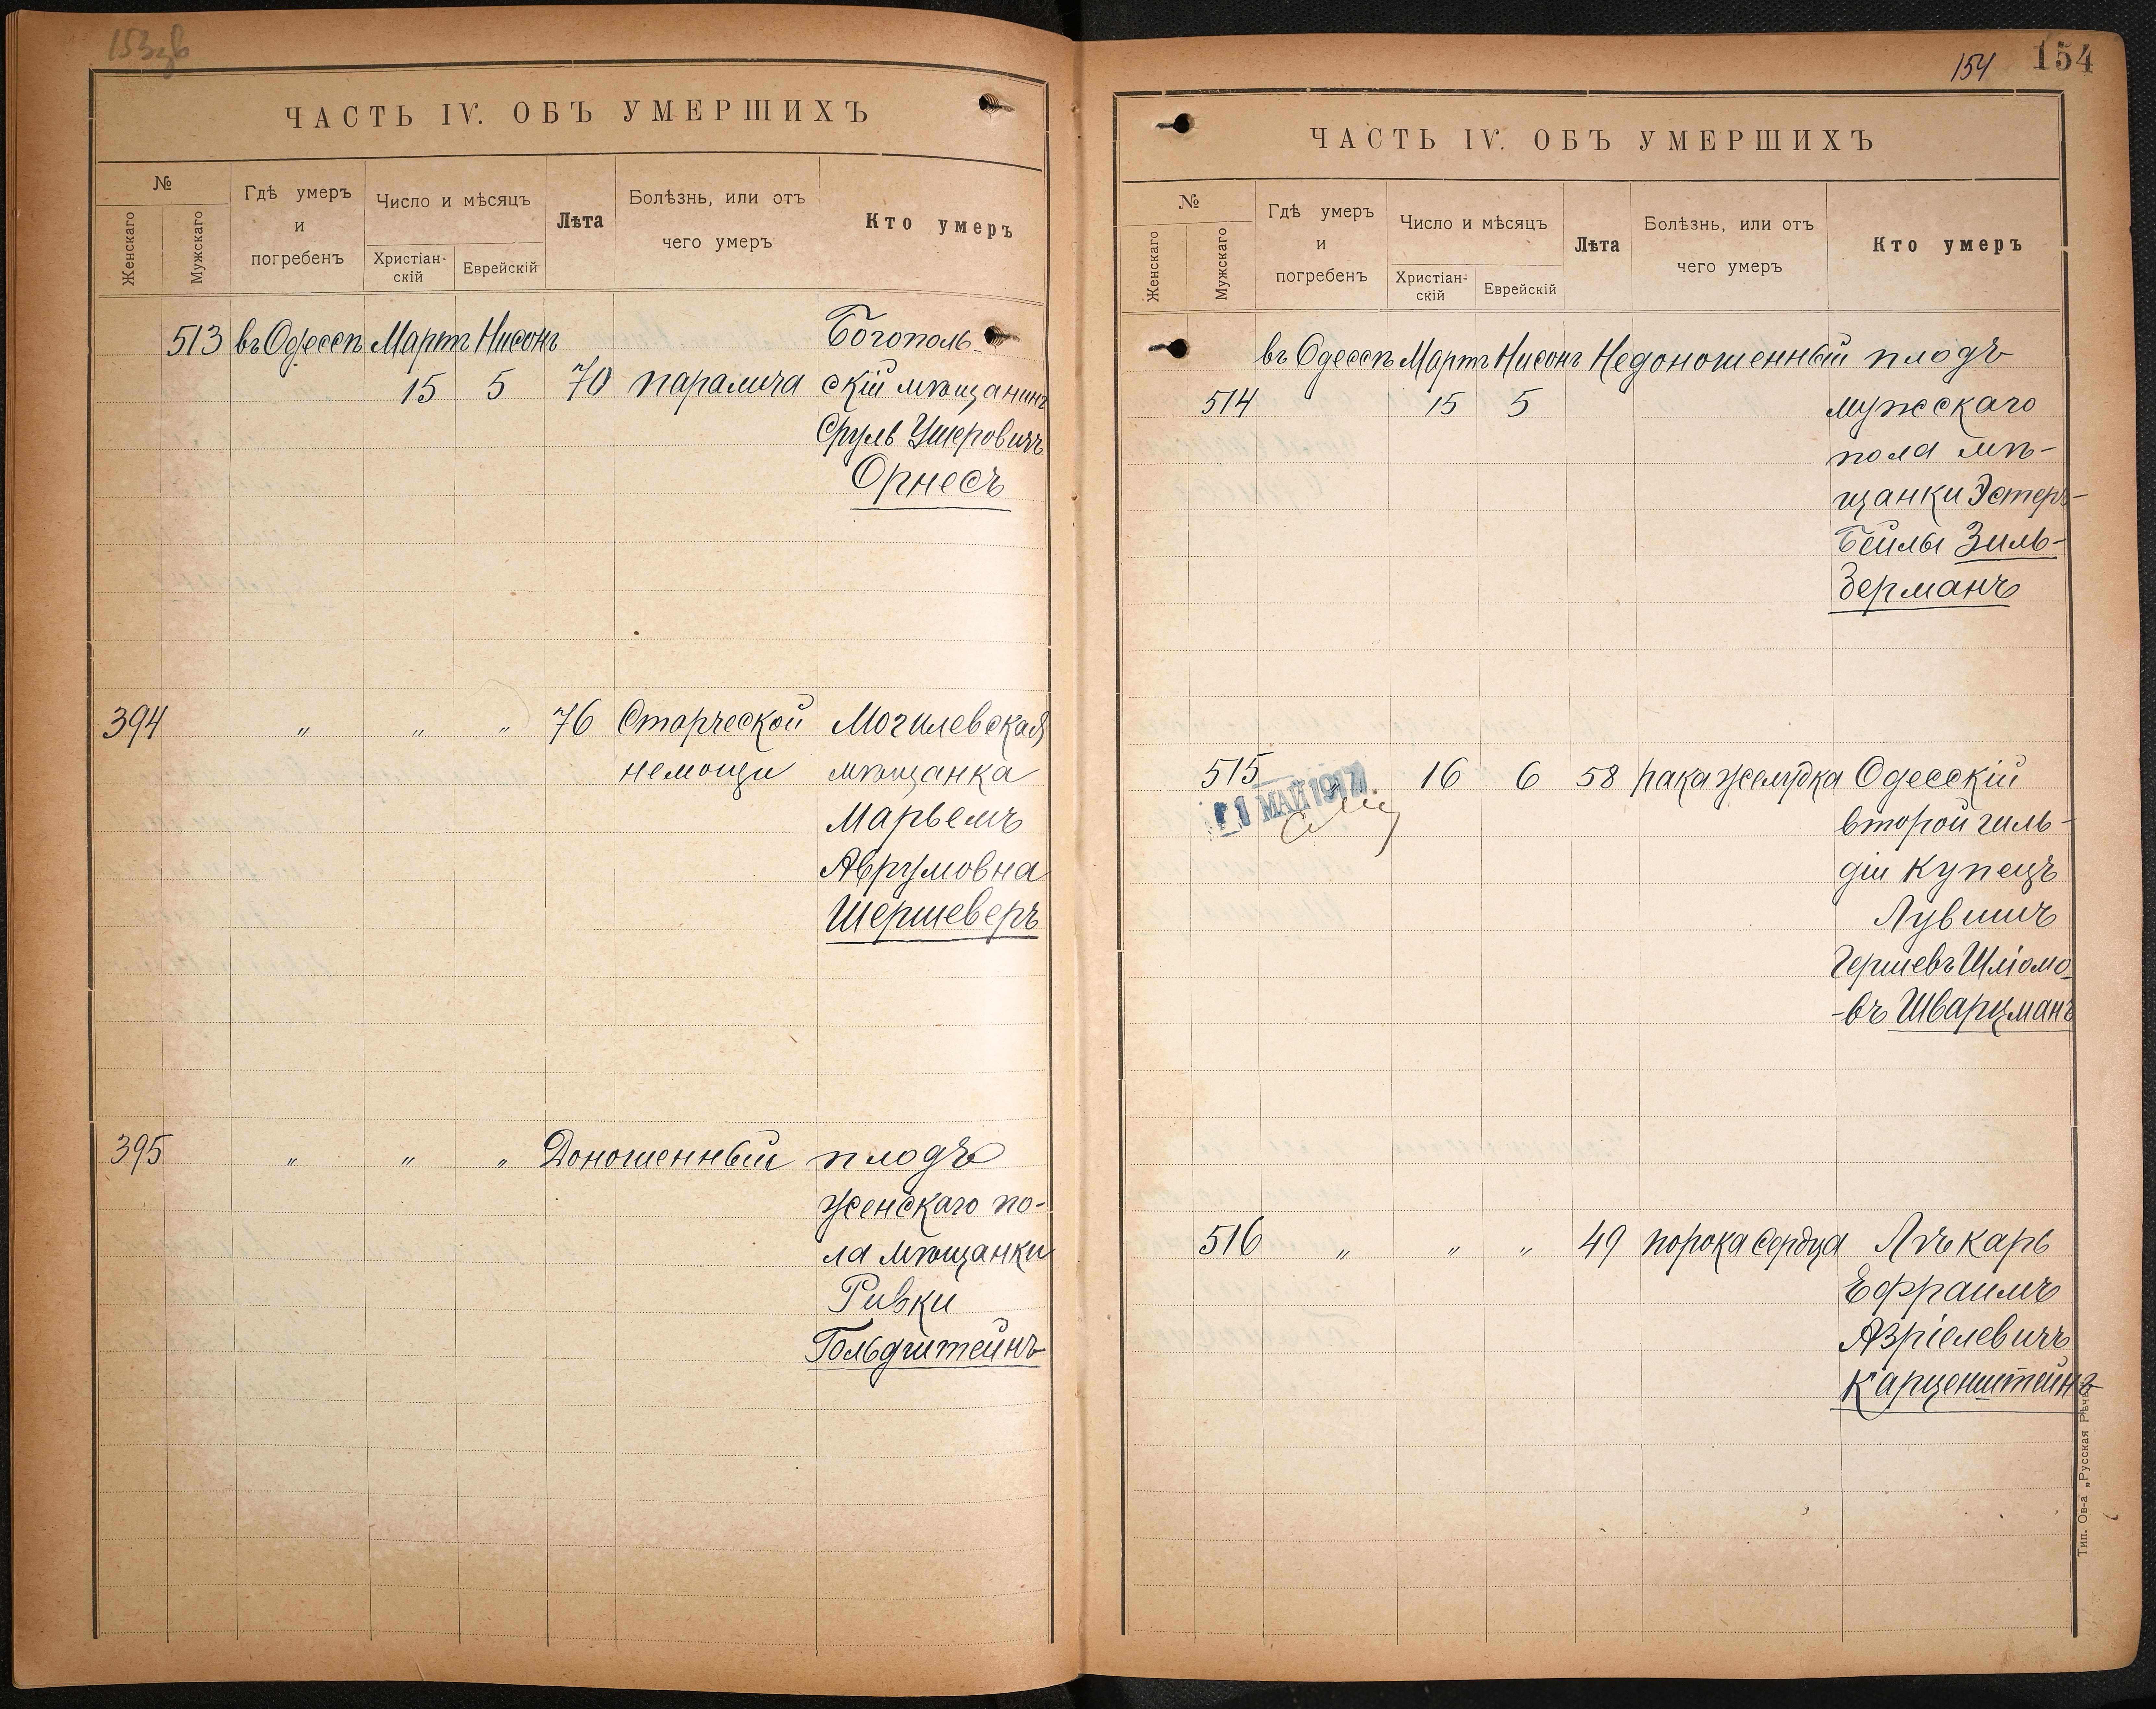 ЧАСТЬ IV. ОБЪ УМЕРШИХЪ
№
Женскаго
Мужскаго
Гдѣ умеръ
и
погребенъ
Число и мѣсяцъ
Христіан-
скій
Еврейскій
Лѣта
Болѣзнь, или отъ
чего умеръ
Кто умеръ
513 въ Одессѣ Мартъ Нисонъ Богополь-
15 5 70 паралича скій мѣщанинъ
Сруль Ушеровичъ
Орнесъ
394 " " " 76 Старческой Могилевская
немощи мѣщанка
Марьемъ
Аврумовна
Шершеверъ
395 " " " Доношенный плодъ
женскаго по-
ла мѣщанки
Ривки
Гольдштейнъ
154 154
ЧАСТЬ IV. ОБЪ УМЕРШИХЪ
№
Женскаго
Мужскаго
Гдѣ умеръ
и
погребенъ
Число и мѣсяцъ
Христіан-
скій
Еврейскій
Лѣта
Болѣзнь, или отъ
чего умеръ
Кто умеръ
въ Одессѣ Мартъ Нисонъ Недоношенный плодъ
514 15 5 мужскаго
пола мѣ-
щанки Эстеръ-
Бейлы Зиль-
Зерманъ
515 16 6 58 рака желудка Одесскій
МАЙ 1917
второй гиль-
діи купецъ
Лувишъ
Гершевъ Шліомо-
-въ Шварцманъ
516 " " " 49 порока сердца Лѣкарь
Ефраимъ
Азріелевичъ
Карценштейнъ
Тип. Ов-а „Русская Рѣчь"